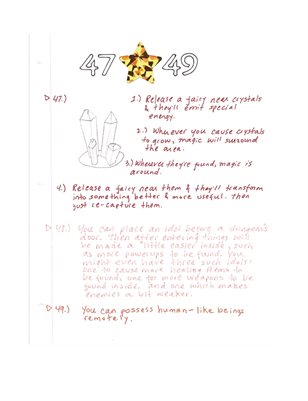 47 49
▷ 47.) 1.) Release a fairy near crystals
& they'll emit special
energy.
2.) Whenever you cause crystals
to grow, magic will surround
the area.
3.) Wherever they're found, magic is
around.
4.) Release a fairy near them & they'll transform
into something better & more useful. Then
just re-capture them.
▷ 48.) You can place an idol before a dungeon's
door. Then after entering things will
be made a "little easier inside", such
as more powerups to be found. You
might even have three such idols:
one to cause more healing items to
be found, one for more weapons to be
found inside, and one which makes
enemies a bit weaker.
▷ 49.) You can possess human-like beings
remotely.